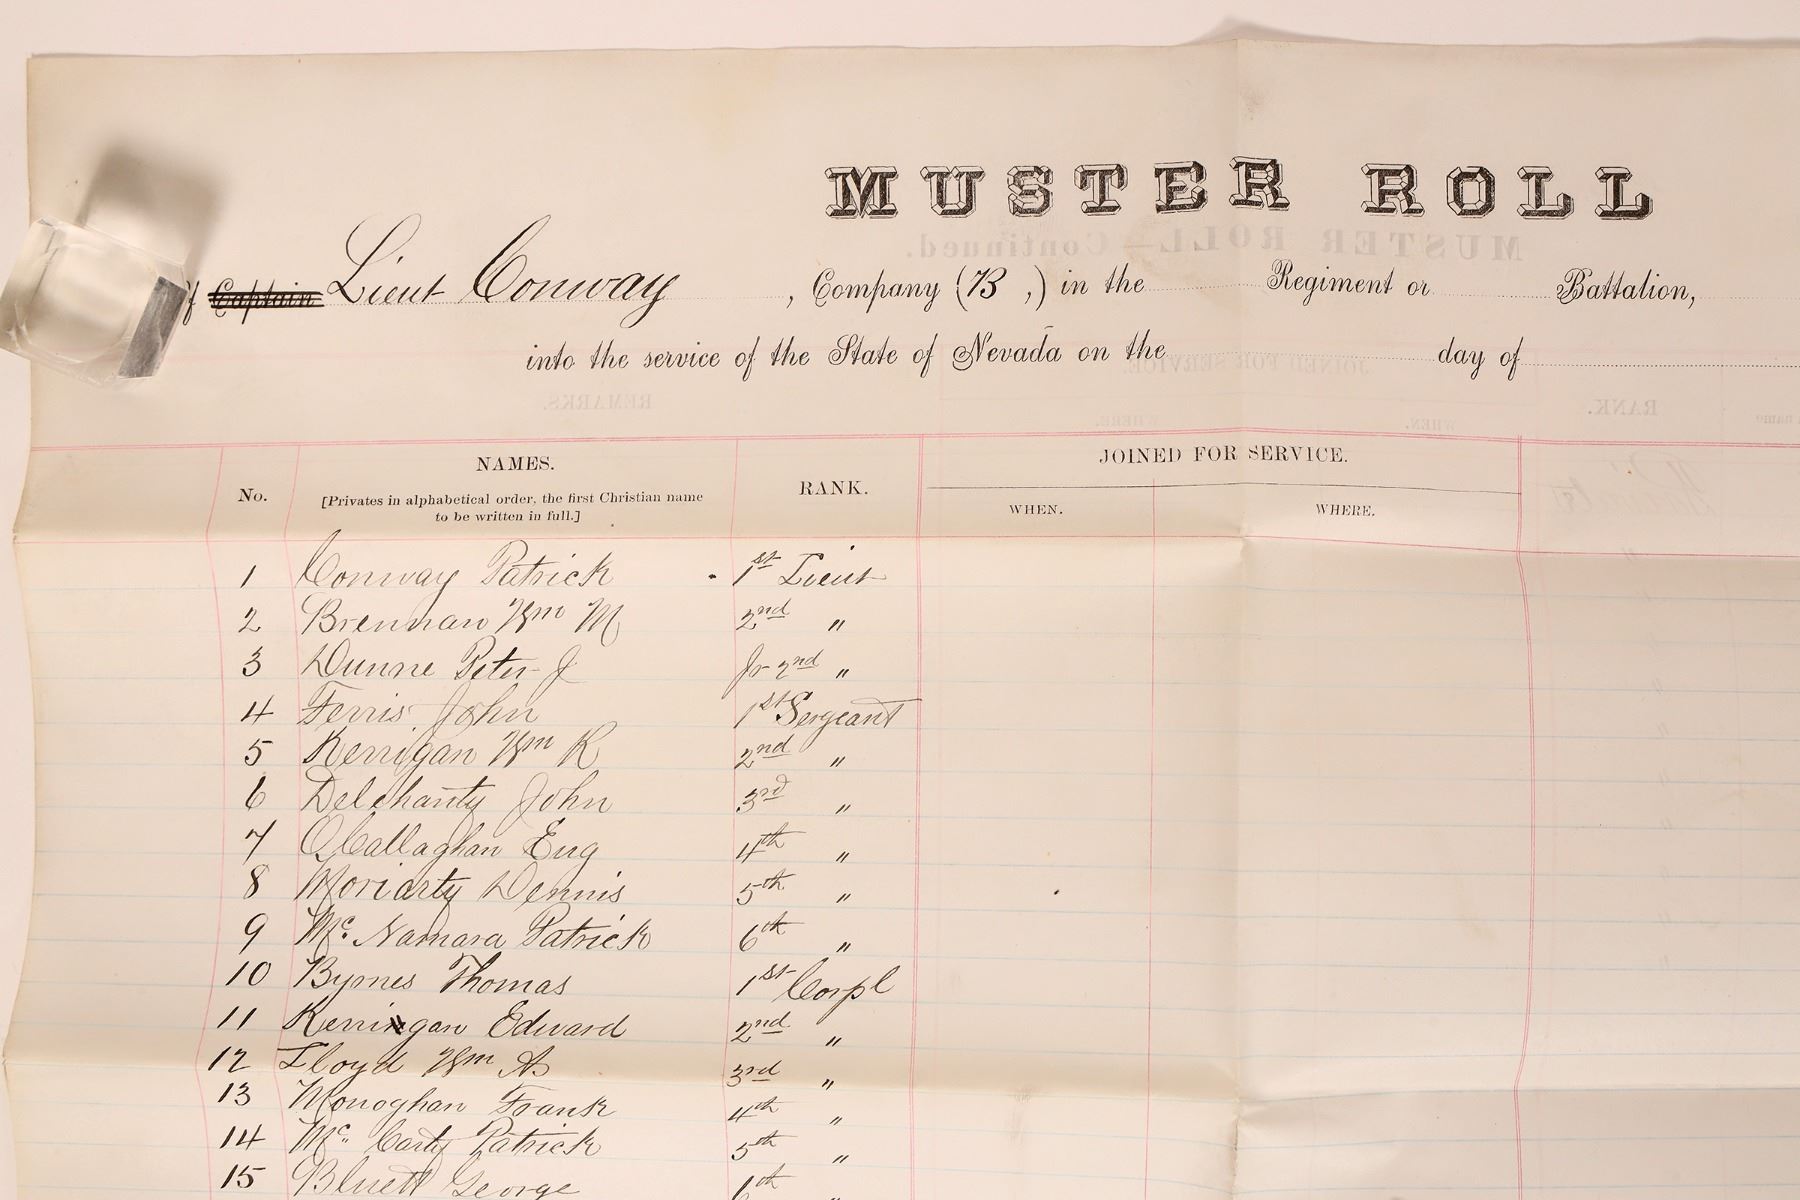 MUSTER ROLL
of Captain Lieut Conway, Company (B,) in the Regiment or Battalion,
into the service of the State of Nevada on the day of
No. NAMES. RANK. JOINED FOR SERVICE.
[Privates in alphabetical order, the first Christian name
to be written in full.]
WHEN. WHERE.
1 Conway Patrick 1st Lieut
2 Brennan Wm M 2nd "
3 Dunne Peter J Jr 2nd "
4 Ferris John 1st Sergeant
5 Kerrigan Wm K 2nd "
6 Delehanty John 3rd "
7 O'Callaghan Eug 4th "
8 Moriarty Dennis 5th "
9 Mc. Namara Patrick 6th "
10 Byrnes Thomas 1st Corpl
11 Kerrigan Edward 2nd "
12 Lloyd Wm A 3rd "
13 Monoghan Frank 4th "
14 Mc. Carty Patrick 5th "
15 Bluett George 6th "
MUSTER ROLL—Continued.
JOINED FOR SERVICE.
REMARKS.
RANK.
WHERE.
WHEN.